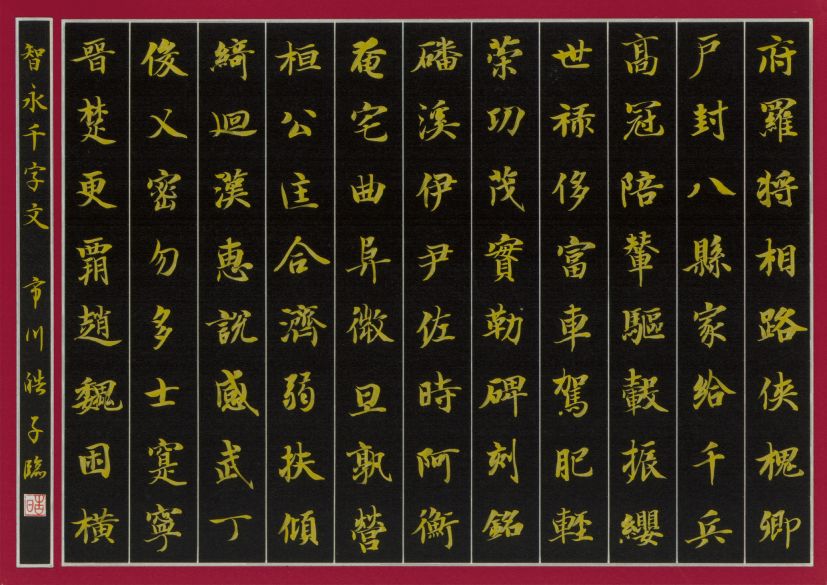 府羅将相路侠槐卿
戸封八縣家給千兵
髙冠陪輦驅轂振纓
世禄侈富車駕肥輕
策功茂實勒碑刻銘
磻溪伊尹佐時阿衡
奄宅曲阜微旦孰營
桓公匡合濟弱扶傾
綺迴漢惠説感武丁
俊乂密勿多士寔寧
晋楚更覇趙魏困横
智永千字文 市川皓子臨